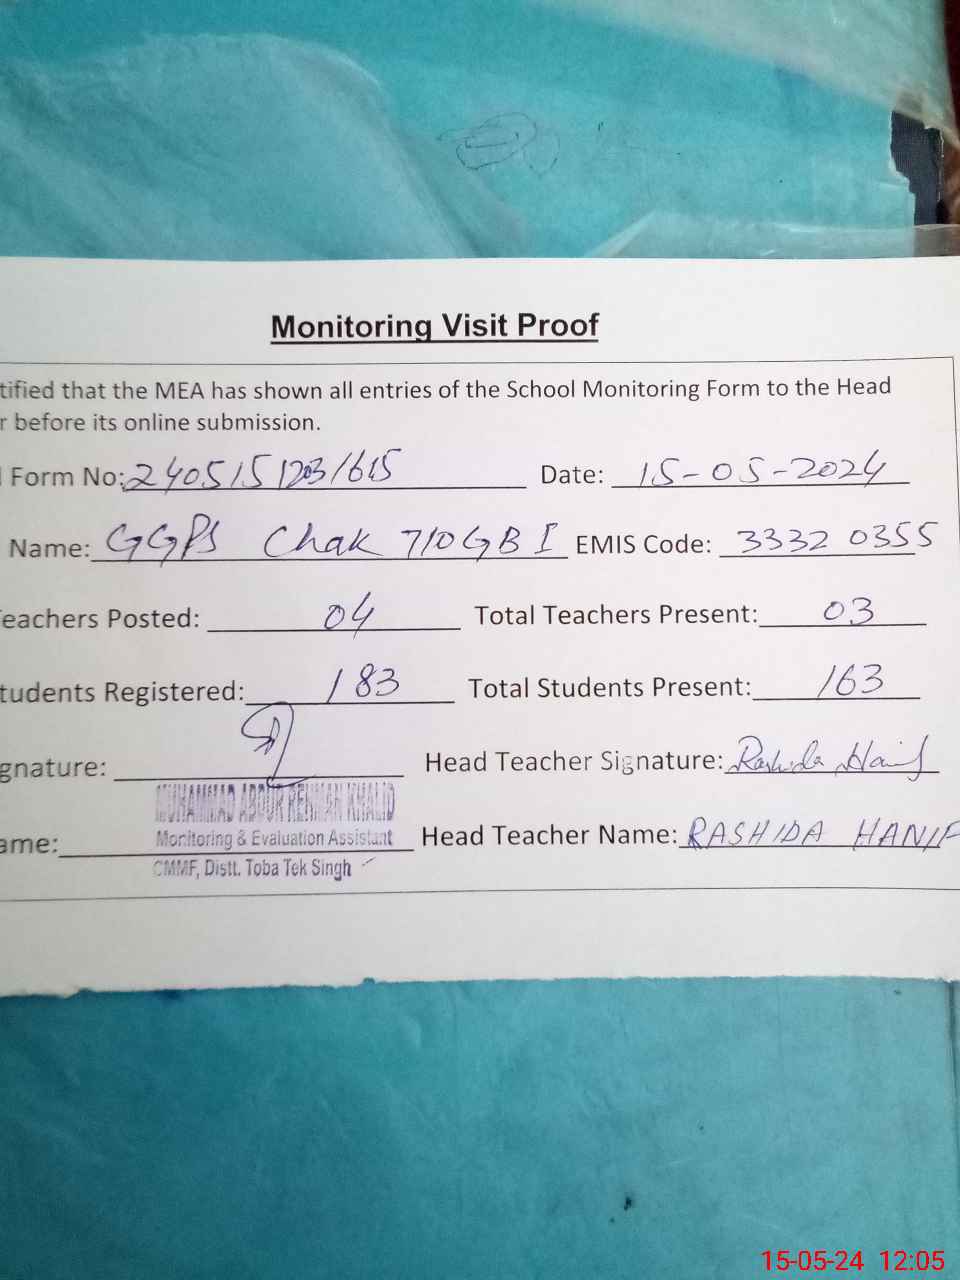 Monitoring Visit Proof
tified that the MEA has shown all entries of the School Monitoring Form to the Head
r before its online submission.
Form No: 240515 1203/615 Date: 15-05-2024
Name: GGPS Chak 710 GB I EMIS Code: 3332 0355
eachers Posted: 04 Total Teachers Present: 03
tudents Registered: 183 Total Students Present: 163
gnature: Head Teacher Signature: Rashida Hanif
MUHAMMAD ABDUR REHMAN KHALID
ame: Monitoring & Evaluation Assistant Head Teacher Name: RASHIDA HANIF
CMMF, Distt. Toba Tek Singh
15-05-24 12:05